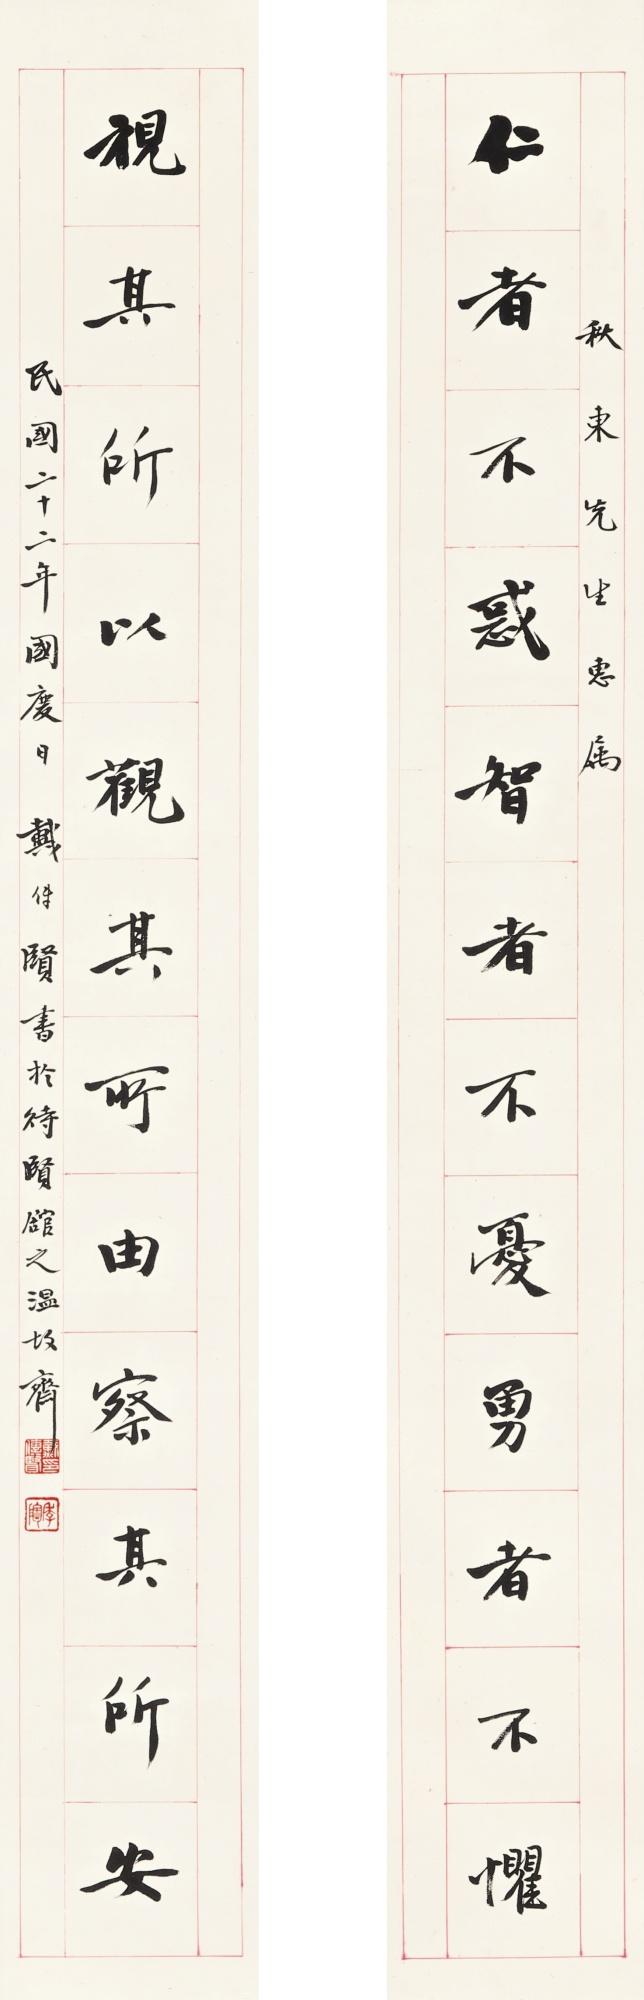 秋東先生惠属
仁者不惑智者不憂勇者不懼
視其所以觀其所由察其所安
民國二十二年國慶日　戴傳賢書於待賢館之温故齊